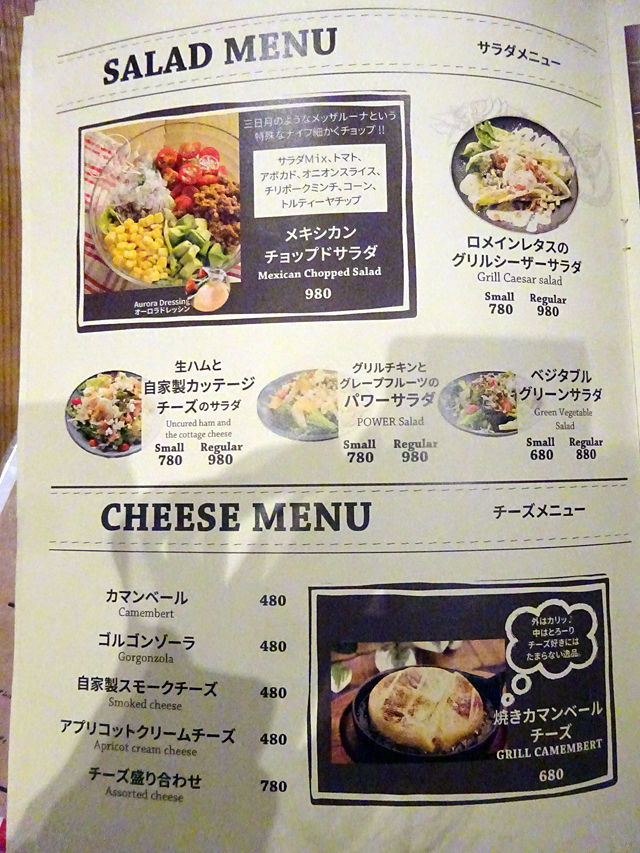 SALAD MENU
サラダメニュー
三日月のようなメッザルーナという
特殊なナイフ細かくチョップ!!
サラダMix、トマト、
アボカド、オニオンスライス、
チリポークミンチ、コーン、
トルティーヤチップ
メキシカン
チョップドサラダ
Mexican Chopped Salad
980
Aurora Dressing
オーロラドレッシン
ロメインレタスの
グリルシーザーサラダ
Grill Caesar salad
Small Regular
780 980
生ハムと
自家製カッテージ
チーズのサラダ
Uncured ham and
the cottage cheese
Small Regular
780 980
グリルチキンと
グレープフルーツの
パワーサラダ
POWER Salad
Small Regular
780 980
ベジタブル
グリーンサラダ
Green Vegetable
Salad
Small Regular
680 880
CHEESE MENU
チーズメニュー
カマンベール 480
Camembert
ゴルゴンゾーラ 480
Gorgonzola
自家製スモークチーズ 480
Smoked cheese
アプリコットクリームチーズ 480
Apricot cream cheese
チーズ盛り合わせ 780
Assorted cheese
外はカリッ♪
中はとろーり
チーズ好きには
たまらない逸品。
焼きカマンベール
チーズ
GRILL CAMEMBERT
680